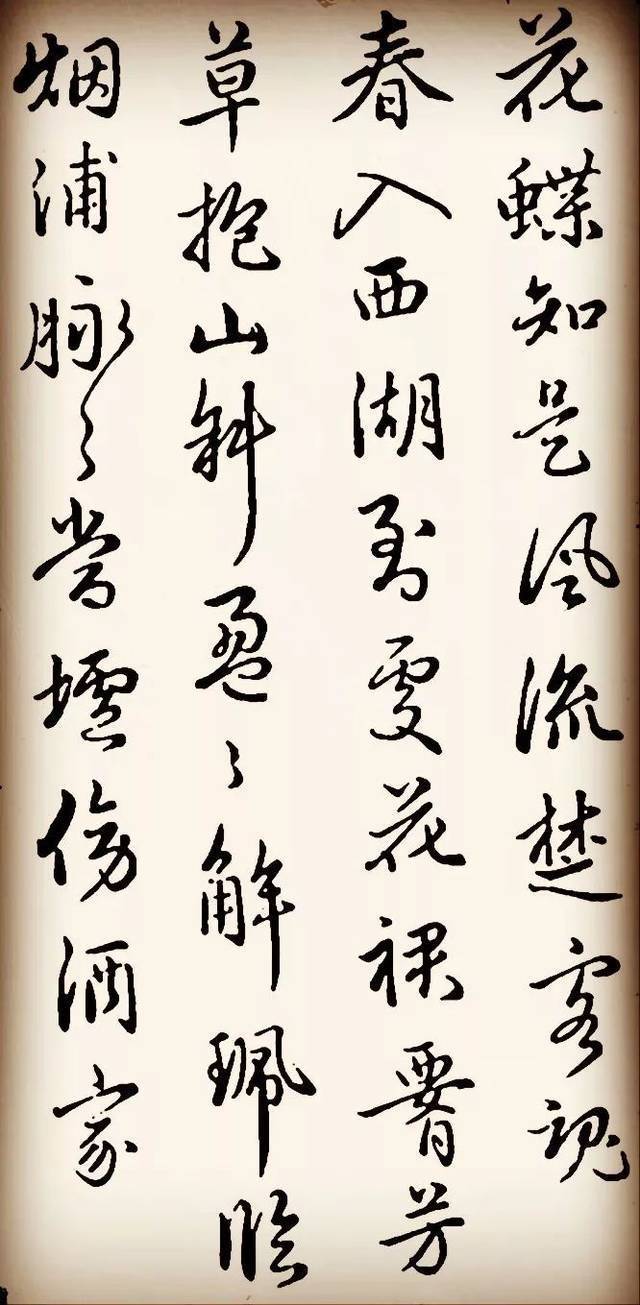 花蝶知是風流楚客魂
春入西湖到處花裙腰芳
草抱山斜盈々解珮臨
烟浦脉々當壚傍酒家